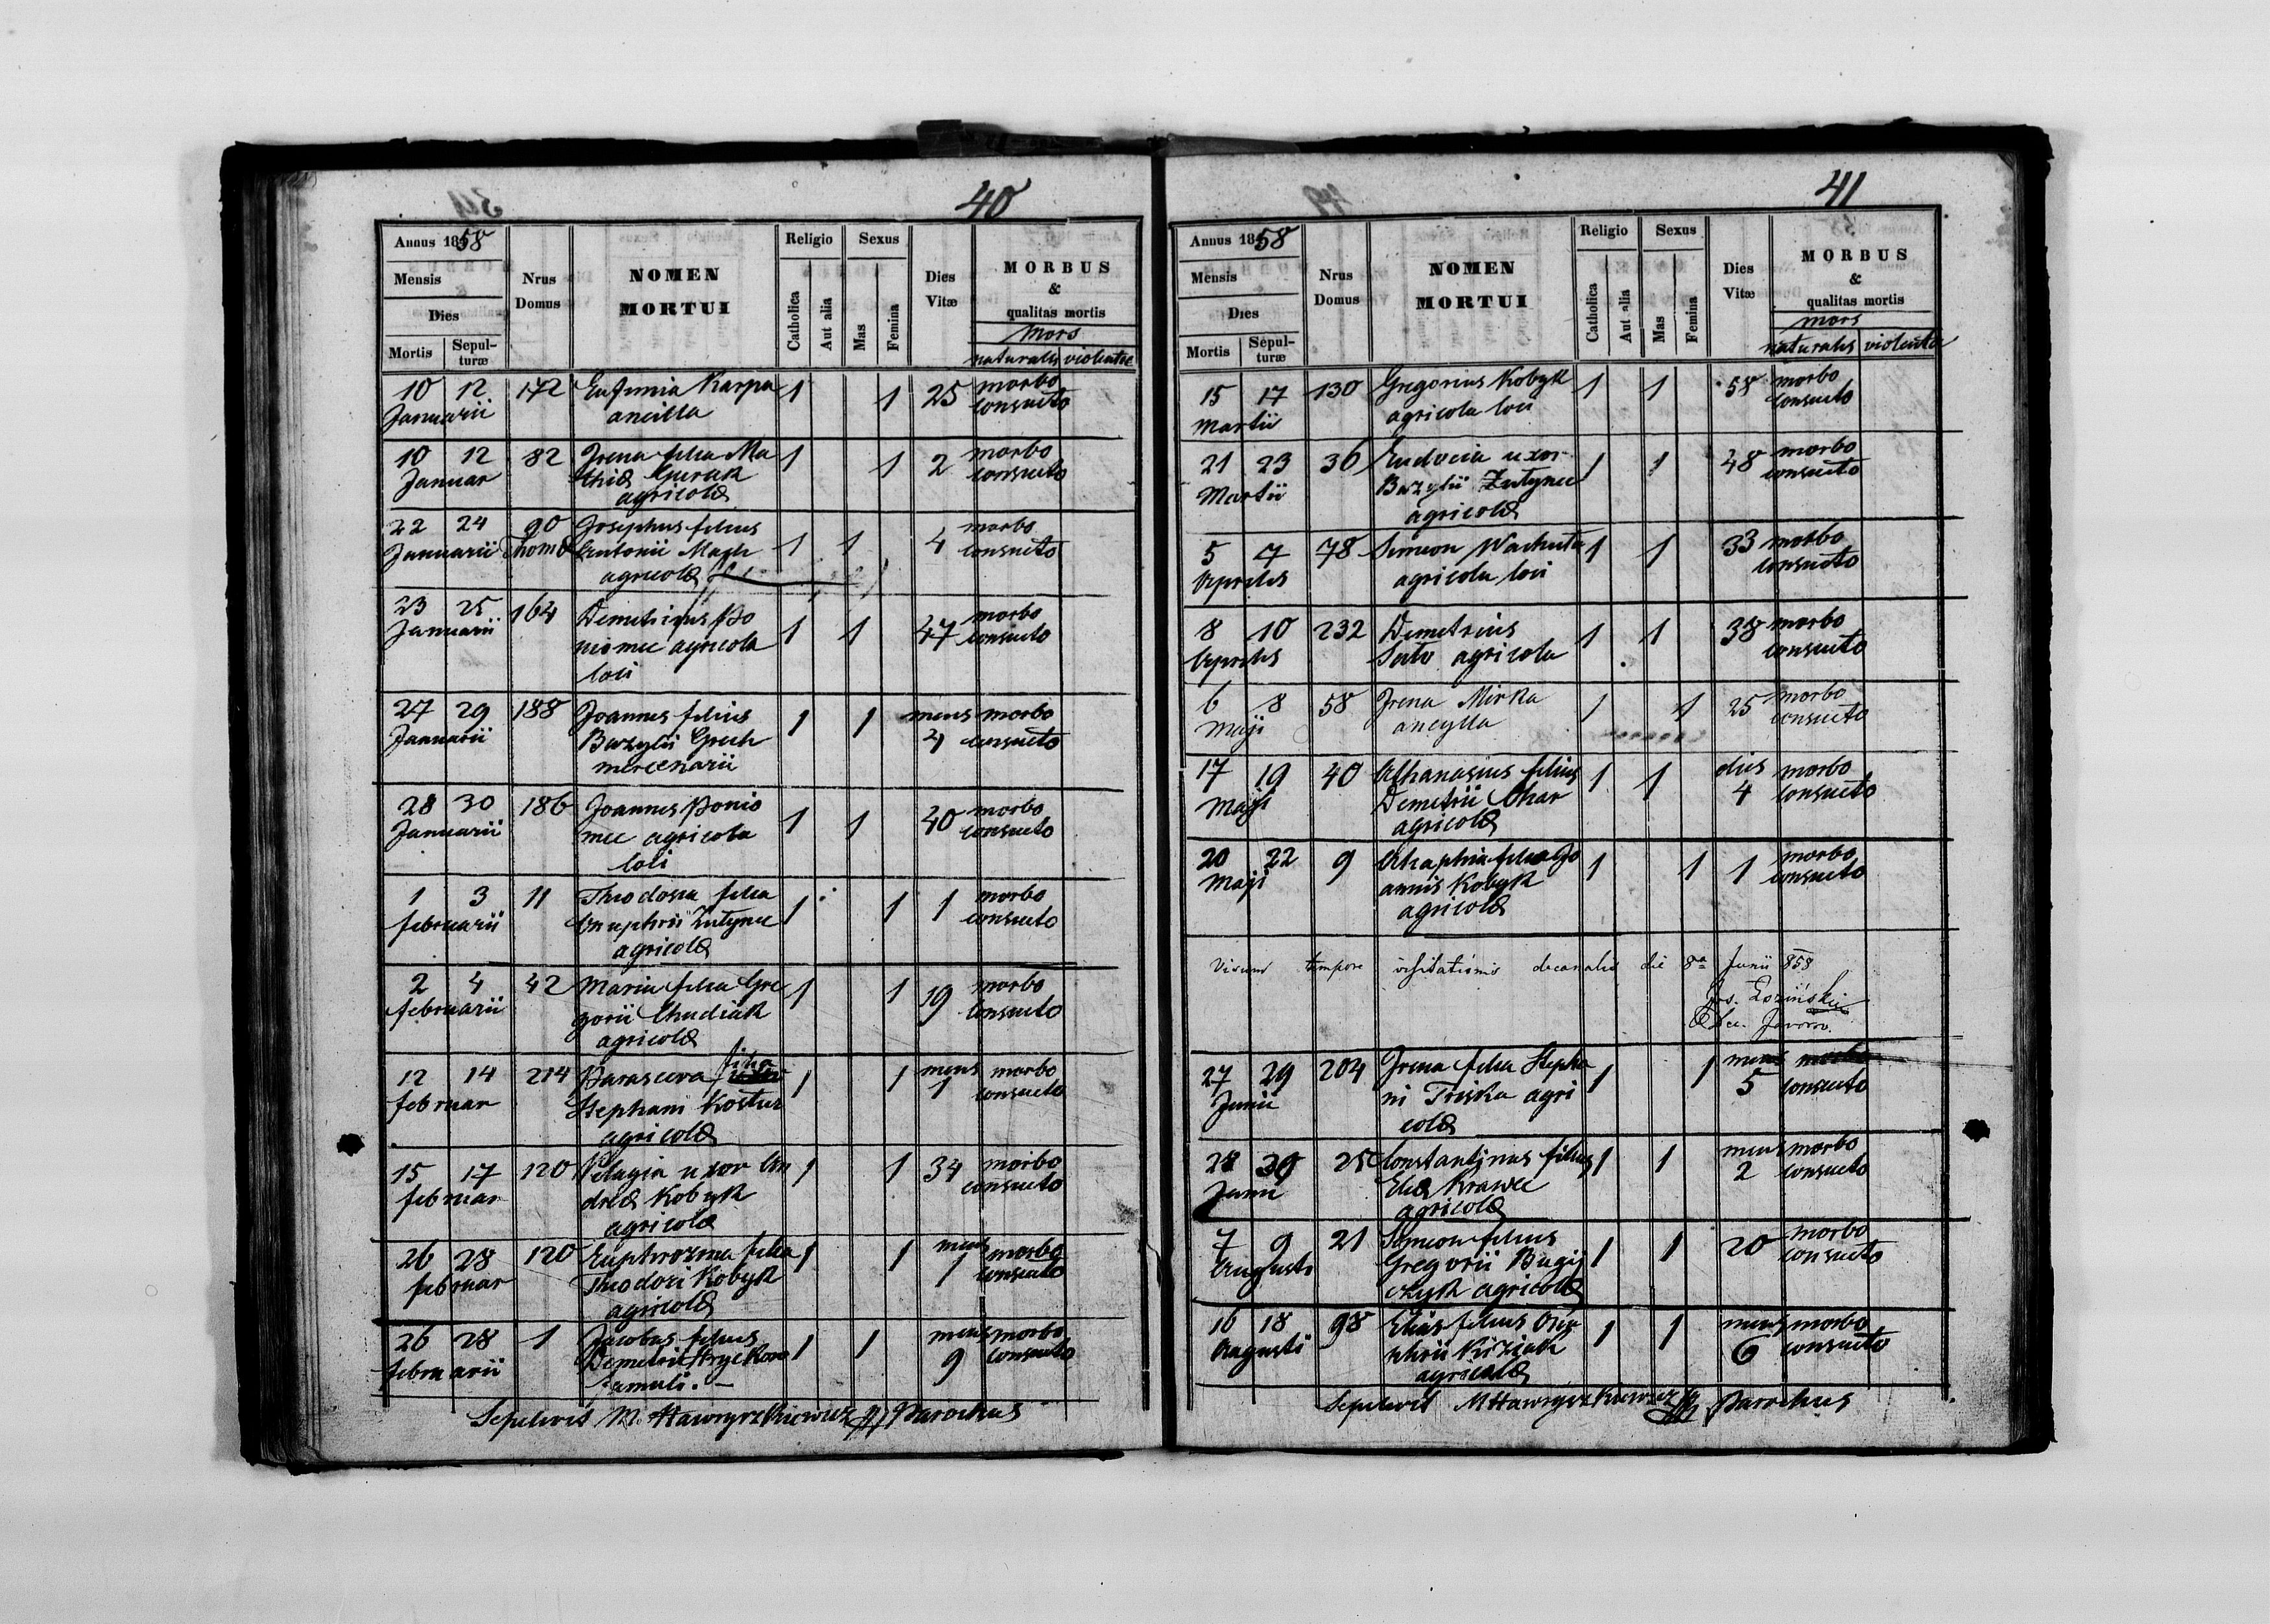 40
Annus 1858
Mensis
Dies
Mortis Sepulturæ
Nrus Domus
NOMEN MORTUI
Religio
Catholica Aut alia
Sexus
Mas Femina
Dies Vitæ
MORBUS & qualitas mortis
Mors
naturalis violenta
10 12 172 Eufimia Karpa 1 1 25 morbo
Januarii ancilla consueto
10 12 82 Irena filia Ma 1 1 2 morbo
Januar thiæ Gurak consueto
agricolæ
22 24 90 Josephus filius morbo
Januarii Thomæ Antonii Magh 1 1 4 consueto
agricolæ
23 25 164 Demetrius Po morbo
Januarii niomec agricola 1 1 47 consueto
loci
27 29 188 Joannes filius 1 1 mens morbo
Januarii Bazylii Grech consueto
mercenarii
28 30 186 Joannes Ponio 1 1 40 morbo
Januarii mec agricola consueto
loci
1 3 11 Theodosia filia 1 1 1 morbo
februarii Onuphrii Zutynec consueto
agricolæ
2 4 42 Maria filia Gre 1 1 19 morbo
februarii gorii Chudiak consueto
agricolæ
12 14 214 Parasceva filia 1 1 mens morbo
februar Stephani Kostur 1 consueto
agricolæ
15 17 120 Pelagia uxor An 1 1 34 morbo
februar dreæ Kobyk consueto
agricolæ
26 28 120 Euphrozina filia 1 1 mens morbo
februar Theodori Kobyk 1 consueto
agricolæ
26 28 1 Jacobus filius 1 1 mens morbo
februarii Demetrii Hryckow 9 consueto
famuli. —
Sepelivit M. Hawryszkiewicz Parochus
41
Annus 1858
Mensis
Dies
Mortis Sepulturæ
Nrus Domus
NOMEN MORTUI
Religio
Catholica Aut alia
Sexus
Mas Femina
Dies Vitæ
MORBUS & qualitas mortis
mors
naturalis violenta
15 17 130 Gregorius Kobyk 1 1 58 morbo
Martii agricola loci consueto
21 23 36 Eudocia uxor 1 1 48 morbo
Martii Bazylii Zutynec consueto
agricolæ
5 7 78 Simeon Wachuta 1 1 33 morbo
Aprilis agricola loci consueto
8 10 232 Demetrius 1 1 38 morbo
Aprilis agricola consueto
6 8 58 Irena Mirka 1 1 25 morbo
Maji ancylla consueto
17 19 40 Athanasius filius 1 1 dies morbo
Maji Demetrii Char 4 consueto
agricolæ
20 22 9 Ahaphia filia Jo 1 1 1 morbo
Maji annis Kobyk consueto
agricolæ
Visum tempore visitationis decanalis die 8a Junii 858
Jos. Łoziński
Dec. Javorov.
27 29 204 Irena filia Stepha 1 1 mens morbo
Junii ni Triska agri 5 consueto
colæ
28 30 Constantinus filius 1 1 mens morbo
Junii Eliæ Krawec 2 consueto
agricolæ
7 9 21 Simeon filius 1 1 20 morbo
Augusti Gregorii Bugij consueto
czyk agricolæ
16 18 98 Elias filius Onu 1 1 mens morbo
Augusti phrii Kiziak 6 consueto
agricolæ
Sepelivit M Hawryszkiewicz Parochus